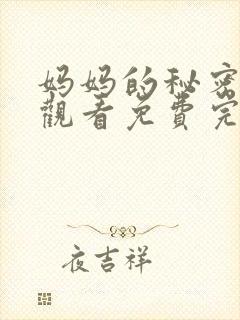 妈妈的秘密
觀看免费完
夜吉祥